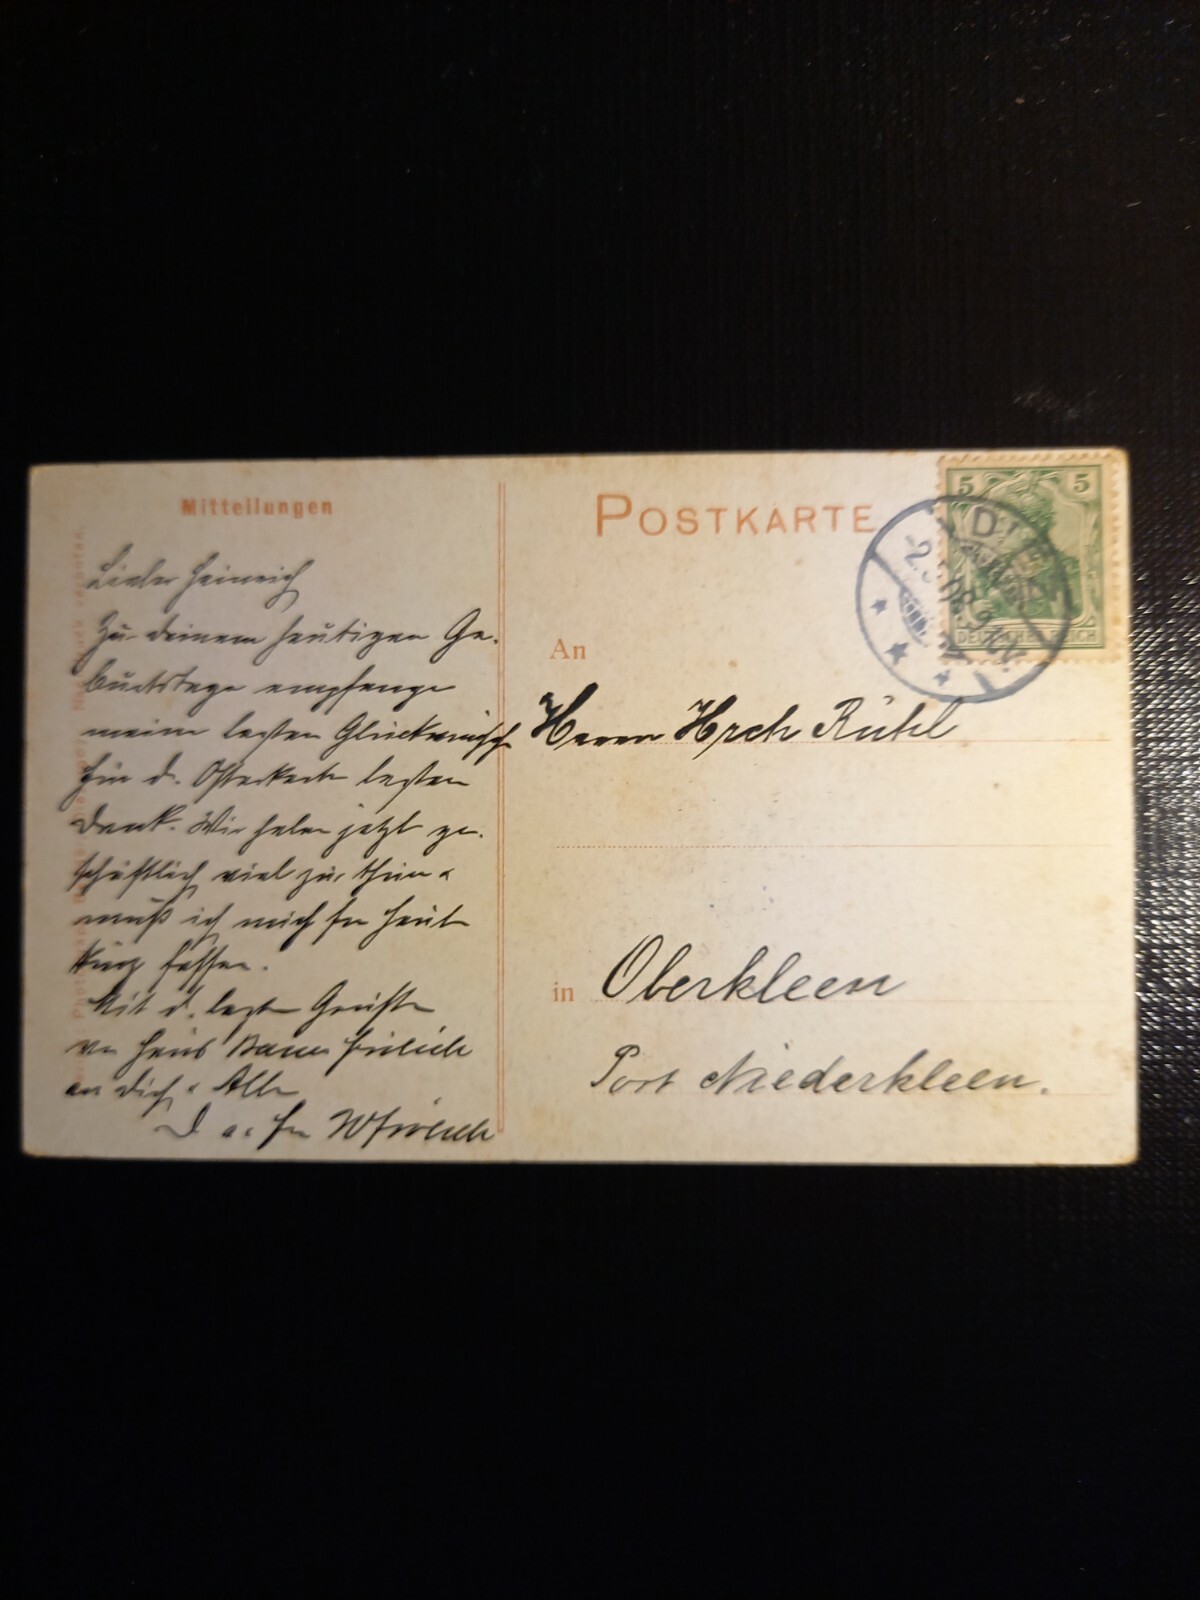 Mitteilungen
Lieber Heinrich
Zu deinem heutigen Ge-
burtstage empfange
meine besten Glückwünsche
Für d. Osterkarte besten
Dank. Wir haben jetzt ge-
schäftlich viel zu thun u
muß ich mich für heute
kurz fassen.
Mit d. besten Grüßen
von Haus
an dich u Alle
D
POSTKARTE
5 5
DEUTSCHES REICH
An
Herrn Hrch Rühl
in Oberkleen
Post Niederkleen.